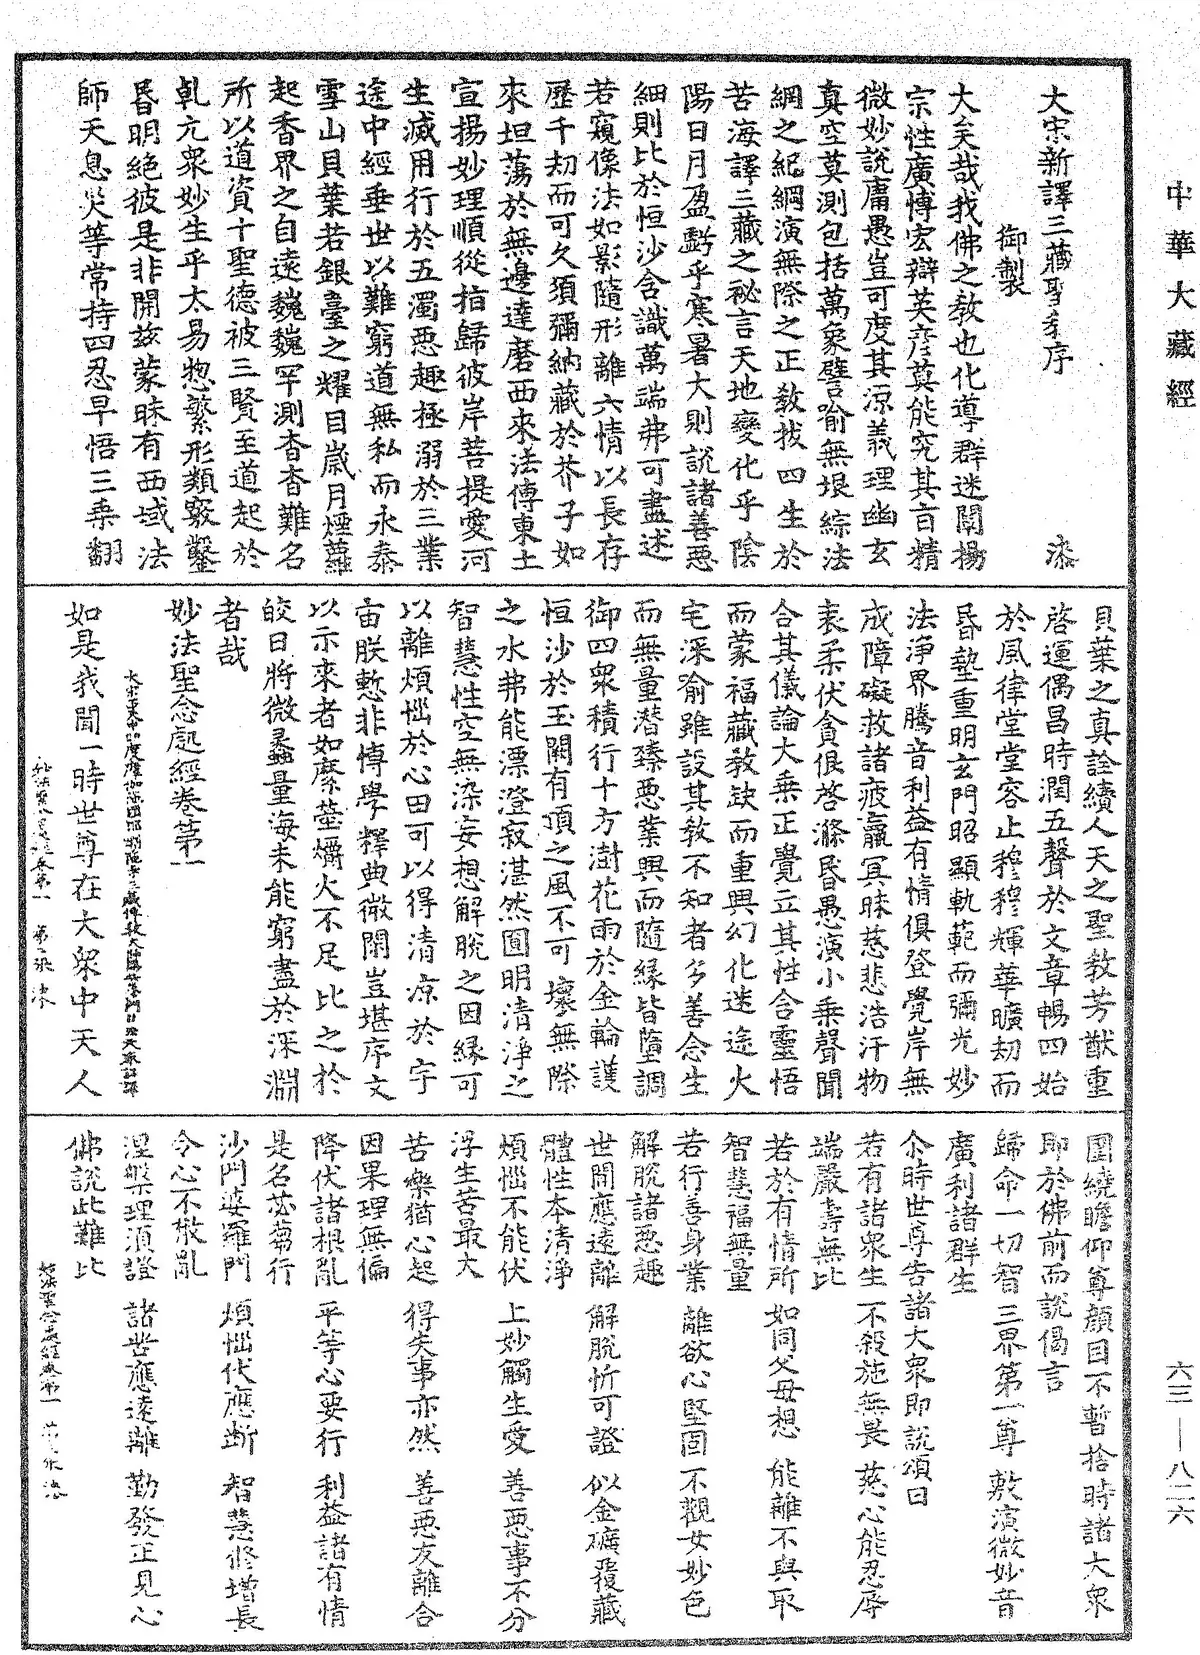 中華大藏經
大宋新譯三藏聖教序
御製
大矣哉我佛之教也化導群迷闡揚
宗性廣博宏辯英彥莫能究其旨精
微妙說庸愚豈可度其源義理幽玄
真空莫測包括萬象譬喻無垠綜法
網之紀綱演無際之正教拔四生於
苦海譯三藏之祕言天地變化乎陰
陽日月盈虧乎寒暑大則說諸善惡
細則比於恒沙含識萬端弗可盡述
若窺像法如影隨形離六情以長存
歷千劫而可久須彌納藏於芥子如
來坦蕩於無邊達磨西來法傳東土
宣揚妙理順從指歸彼岸菩提愛河
生滅用行於五濁惡趣極溺於三業
途中經垂世以難窮道無私而永泰
雪山貝葉若銀臺之耀目歲月煙蘿
起香界之自遠巍巍罕測杳杳難名
所以道資十聖德被三賢至道起於
乹元眾妙生乎太易惣繁形類竅鑿
昏明絕彼是非開茲蒙昧有西域法
師天息災等常持四忍早悟三乘翻
貝葉之真詮續人天之聖教芳猷重
啓運偶昌時潤五聲於文章暢四始
於風律堂堂容止穆穆輝華曠劫而
昏墊重明玄門昭顯軌範而彌光妙
法淨界騰音利益有情俱登覺岸無
成障礙救諸疲羸冥昧慈悲浩汗物
表柔伏貪佷啓滌昏愚演小乘聲聞
合其儀論大乘正覺立其性含靈悟
而蒙福藏教缺而重興幻化迷途火
宅深喻雖設其教不知者多善念生
而無量潛臻惡業興而隨緣皆墮調
御四眾積行十方澍花雨於金輪護
恒沙於玉闕有頂之風不可壞無際
之水弗能漂澄寂湛然圓明清淨之
智慧性空無染妄想解脫之因緣可
以離煩惱於心田可以得清涼於宇
宙朕慙非博學釋典微閑豈堪序文
以示來者如縻螢爝火不足比之於
皎日將微蠡量海未能窮盡於深淵
者哉
妙法聖念處經卷第一
如是我聞一時世尊在大眾中天人
圍繞瞻仰尊顏目不暫捨時諸大眾
即於佛前而說偈言
歸命一切智 三界第一尊 敷演微妙音
廣利諸群生
尒時世尊告諸大眾即說頌曰
若有諸眾生 不殺施無畏 慈心能忍辱
端嚴壽無比
若於有情所 如同父母想 能離不與取
智慧福無量
若行善身業 離欲心堅固 不觀女妙色
解脫諸惡趣
世間應遠離 解脫忻可證 似金礦覆藏
體性本清淨
煩惱不能伏 上妙觸生愛 善惡事不分
浮生苦最大
苦樂猶心起 得失事亦然 善惡友離合
因果理無偏
降伏諸根亂 平等心要行 利益諸有情
是名苾芻行
沙門婆羅門 煩惱伏應斷 智慧修增長
令心不散亂
涅槃理須證 諸苦應遠離 勤發正見心
佛說此難比
六三—八二六